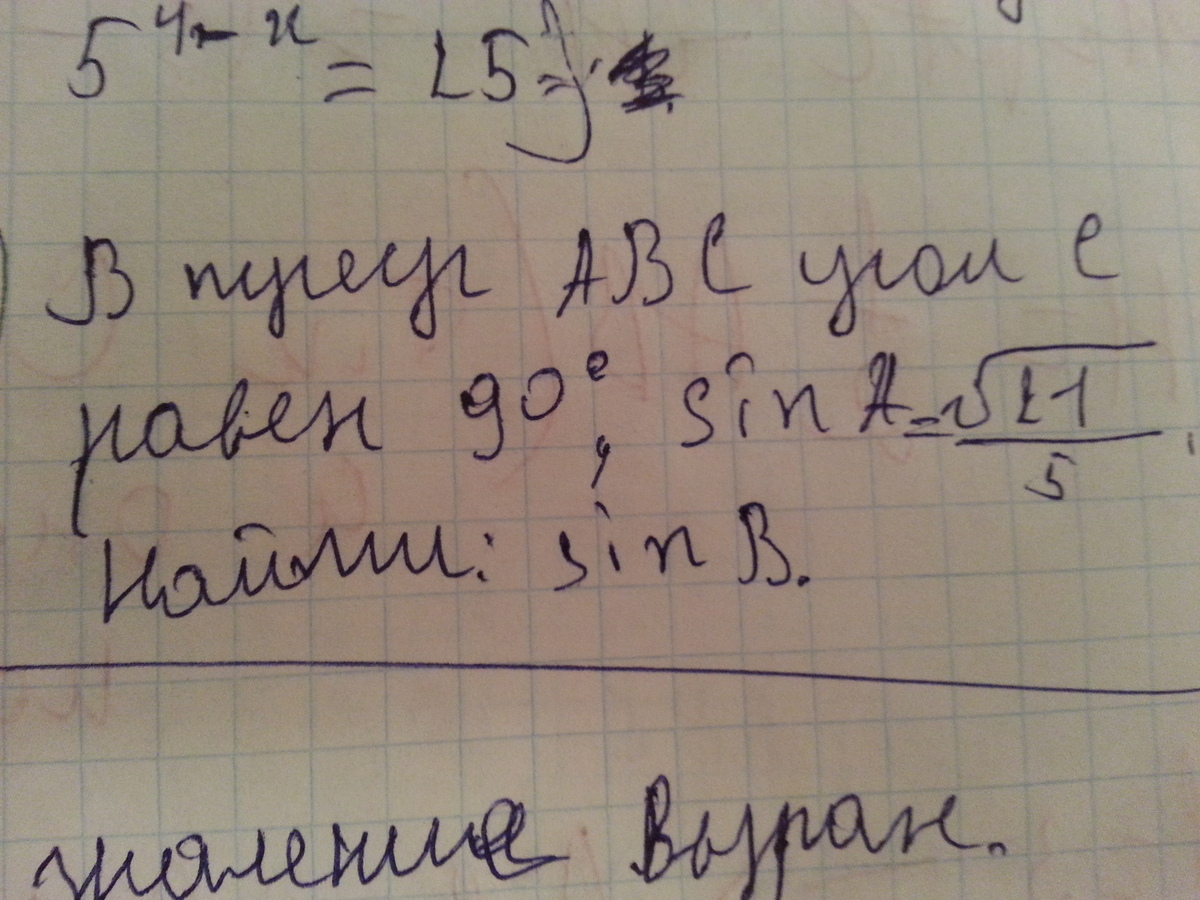 5^(4-x) = 25
В треуг ABC угол C
равен 90°, sin A = √21/5.
Найти: sin B.
значение выраж.